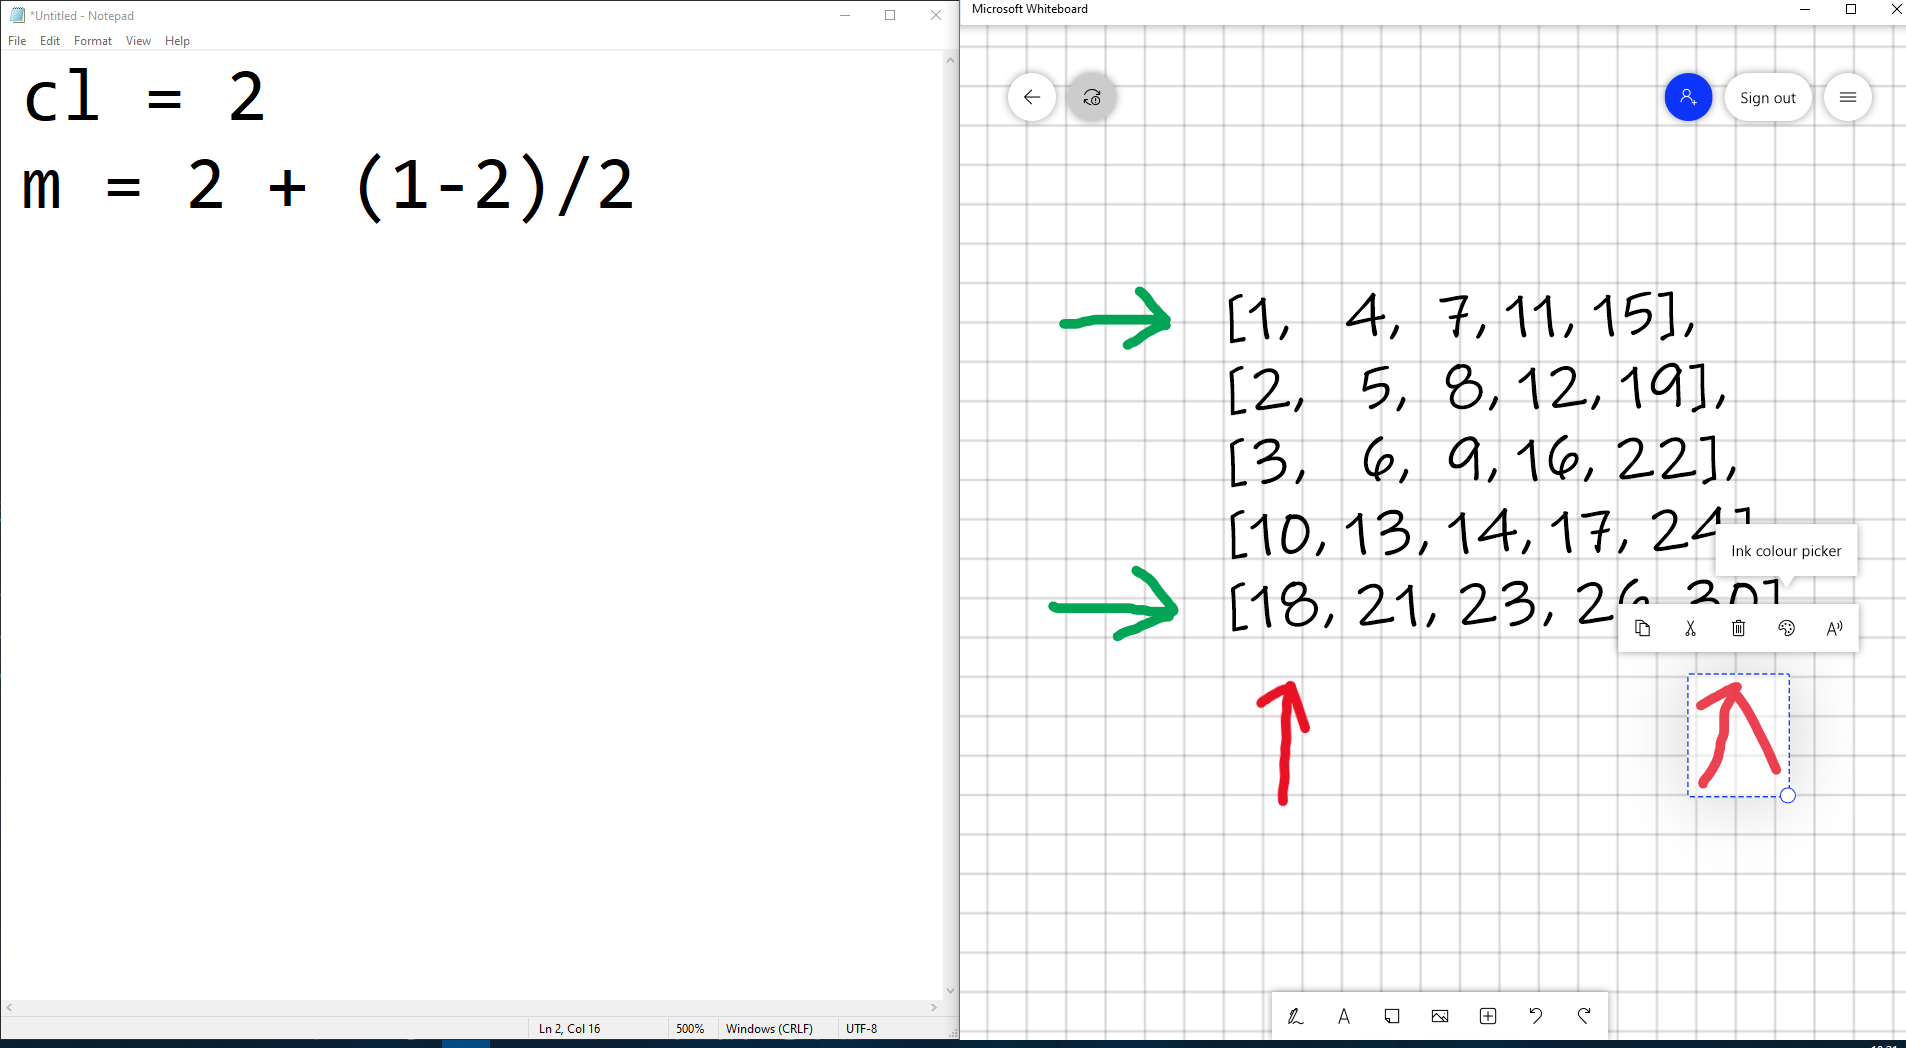 *Untitled - Notepad
File Edit Format View Help
cl = 2
m = 2 + (1-2)/2
Ln 2, Col 16 500% Windows (CRLF) UTF-8
Microsoft Whiteboard
Sign out
[1, 4, 7, 11, 15],
[2, 5, 8, 12, 19],
[3, 6, 9, 16, 22],
[10, 13, 14, 17, 24]
Ink colour picker
[18, 21, 23, 26, 30]